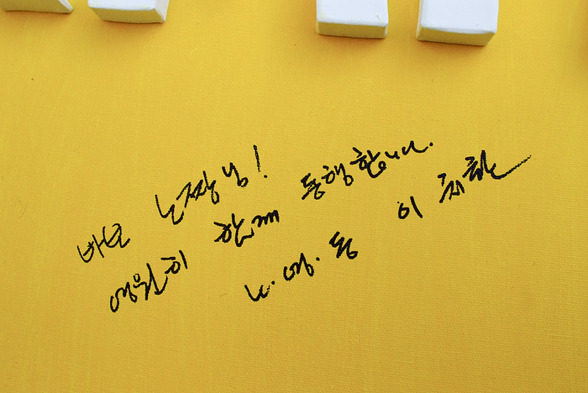 바보 노짱님!
영원히 함께 동행합니다.
노. 영. 동 이 철